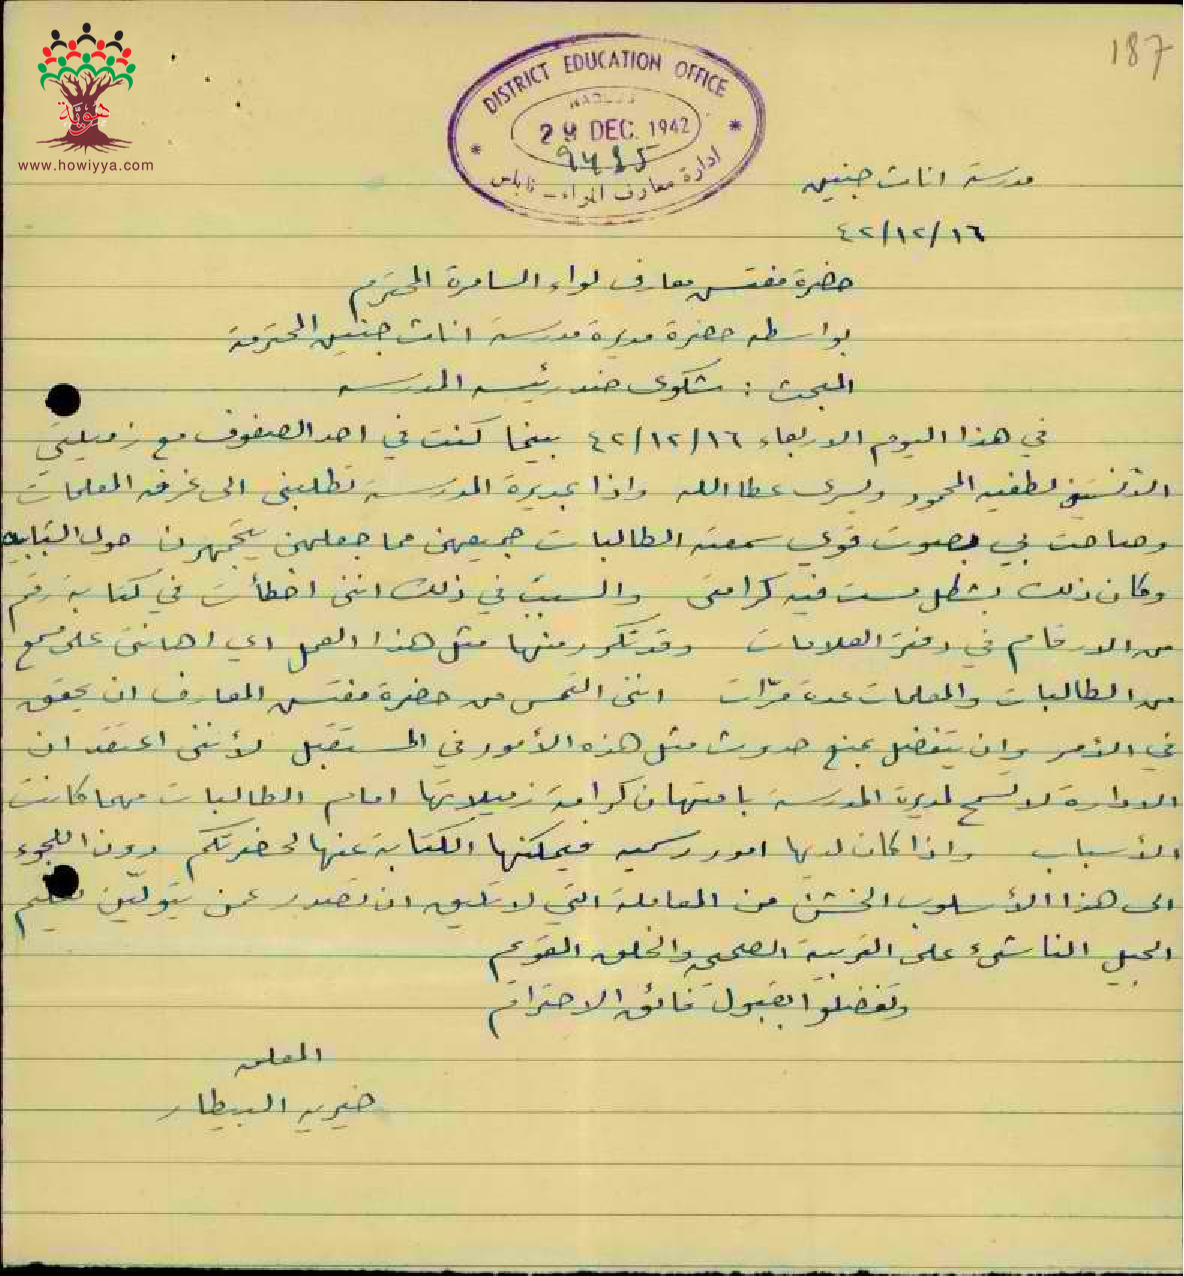 187
هوية
www.howiyya.com
DISTRICT EDUCATION OFFICE
NABLUS
29 DEC. 1942
ادارة معارف اللواء - نابلس
مدرسة اناث جنين
٤٢/١٢/١٦
حضرة مفتش معارف لواء السامرة المحترم
بواسطه حضرة مديرة مدرسة اناث جنين المحترمة
المبحث : شكوى ضد رئيسه المدرسه
في هذا اليوم الاربعاء ٤٢/١٢/١٦ بينما كنت في احد الصفوف مع زميلتيّ
الآنستين لطفيه المحمود ويسرى عطاالله واذا بمديرة المدرسة تطلبني الى غرفه المعلمات
وصاحت بي بصوت قوي سمعته الطالبات جميعهن مما جعلهن يتجمهرن حول الشبابيك
وكان ذلك بشكل مست فيه كرامتى والسبب في ذلك انني اخطأت في كتابة رقم
من الارقام في دفتر العلامات وقد تكرر منها مثل هذا العمل اي اهانتى على مسمع
من الطالبات والمعلمات عدة مرّات اننى التمس من حضرة مفتش المعارف ان يحقق
في الأمر وان يتفضل بمنع حدوث مثل هذه الأمور في المستقبل لأننى اعتقد ان
الادارة لا تسمح لمديرة المدرسة بامتهان كرامة زميلاتها امام الطالبات مهما كانت
الأسباب واذا كان لديها امور رسميه فيمكنها الكتابة عنها لحضرتكم دون اللجوء
الى هذا الأسلوب الخشن من المعاملة التي لا تليق ان تصدر عمن يتولّين تعليم
الجيل الناشىء على التربية الصحيحة والخلق القويم
وتفضلوا بقبول فائق الاحترام
المعلمه
خيريه البيطار